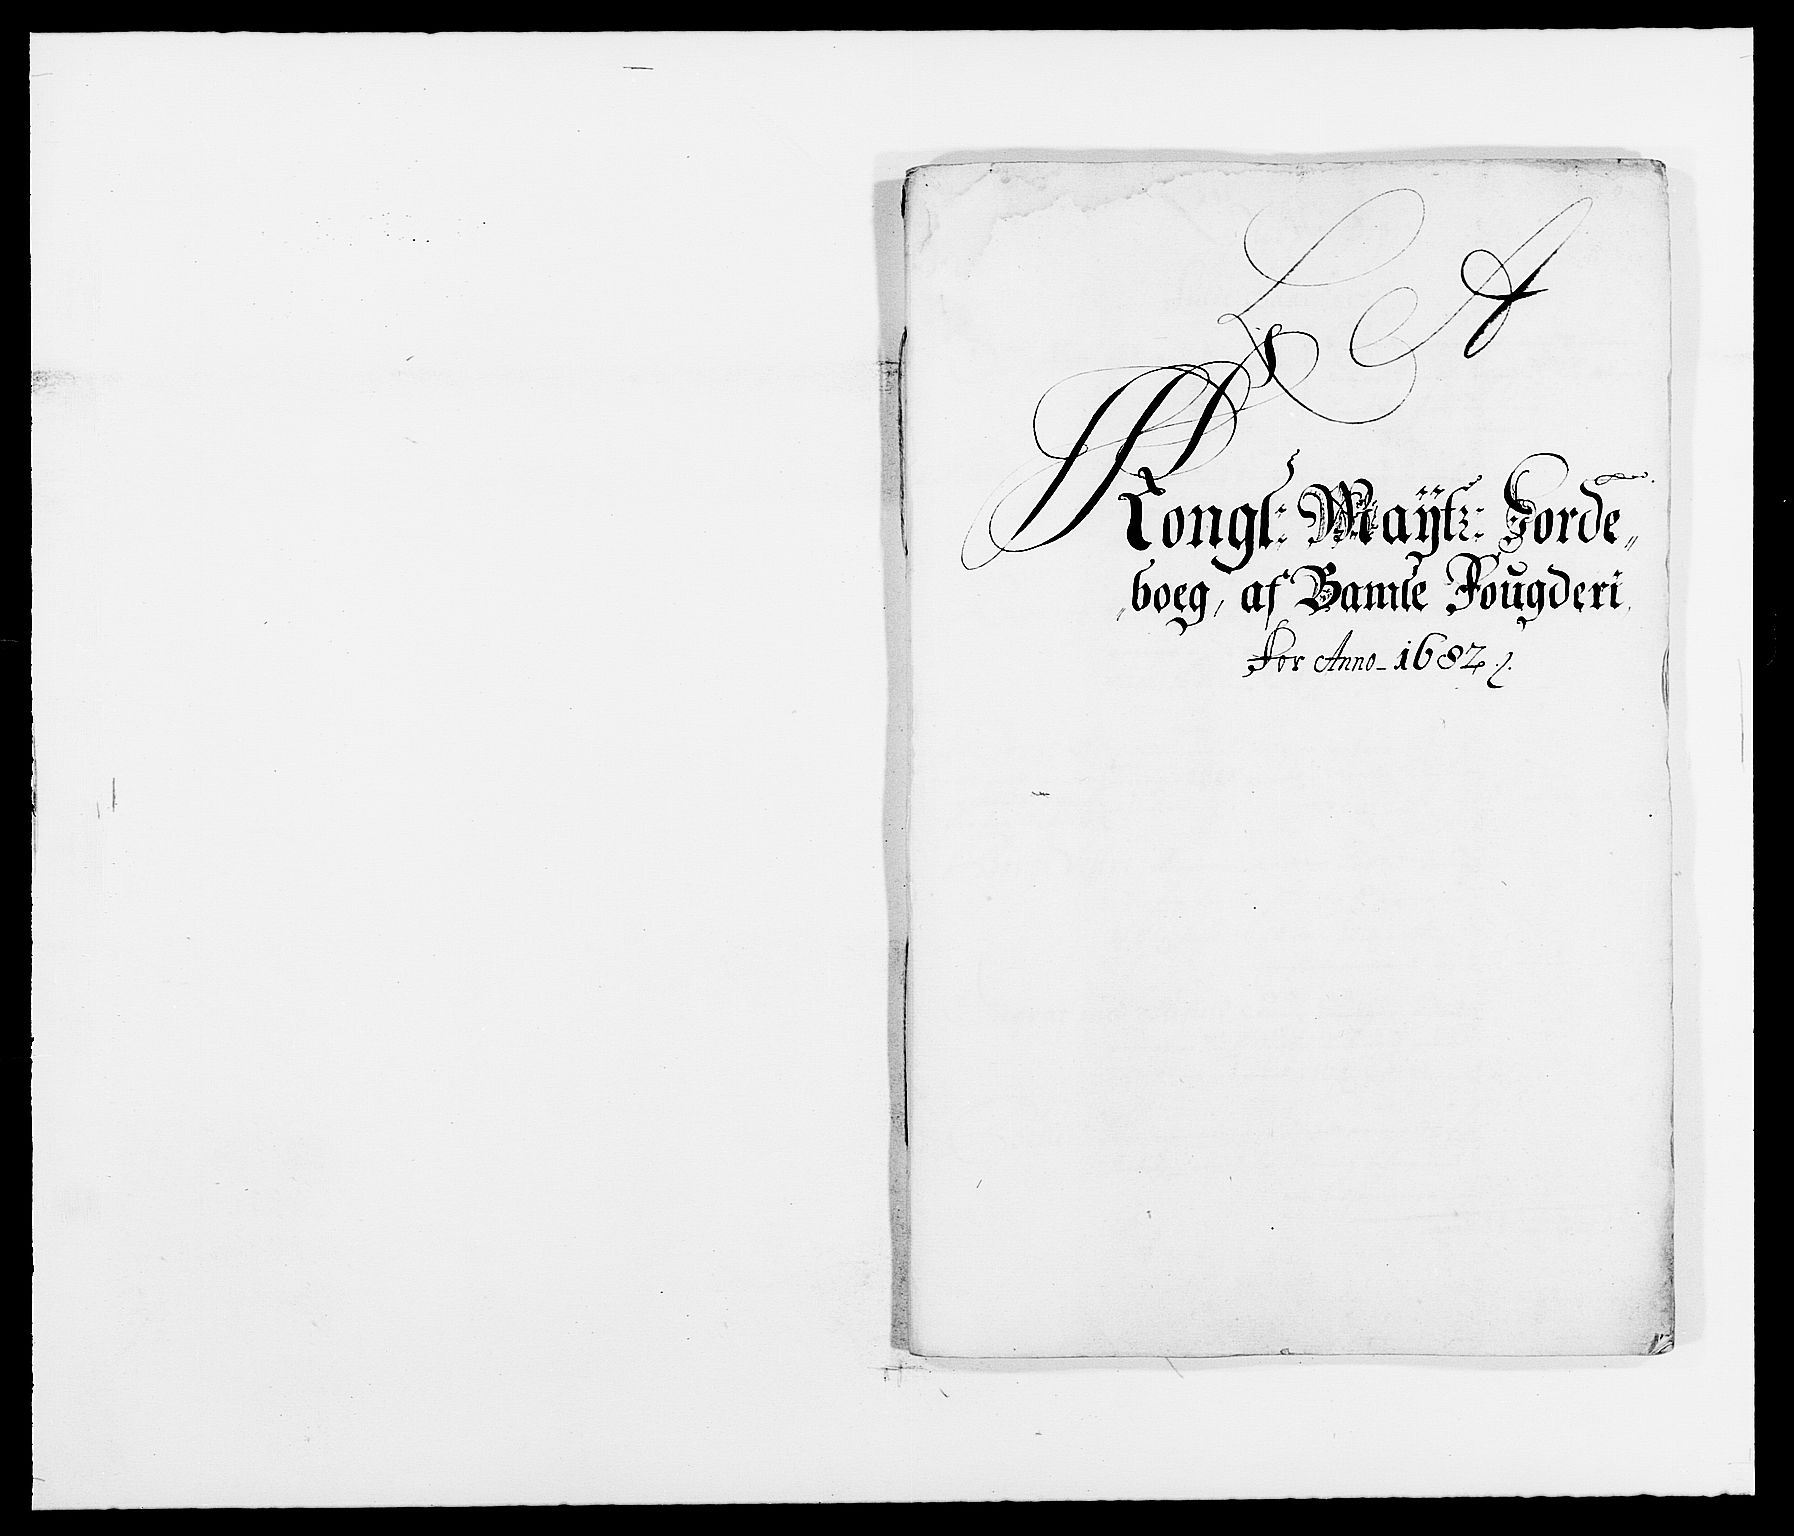 L A
Kongl: Maÿtz: Jorde„
„boeg, af Bamle Fougderi
for Anno 1682